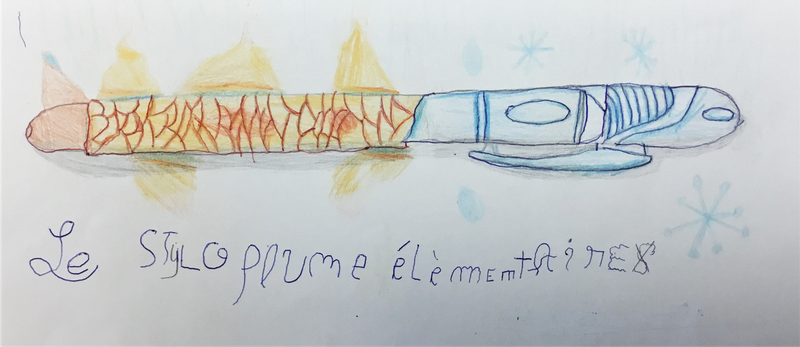 Le STyLO plume élèmemtAires